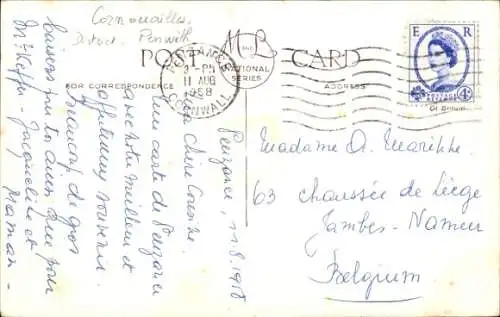 Cornouailles
District. Penwith
POST CARD
M and L
NATIONAL
SERIES
FOR CORRESPONDENCE
ADDRESS
PENZANCE
3 - PM
11 AUG
1958
CORNWALL
E R
POSTAGE
REVENUE
4D
Penzance, 11.8.1958
Chère Cousine
Une carte de Penzance
avec notre meilleur et
affectueux souvenir
Beaucoup de gros
baisers
Jacqueline et
Maman -
Madame A. Marikke
63 chaussée de Liège
Jambes-Namur
Belgium